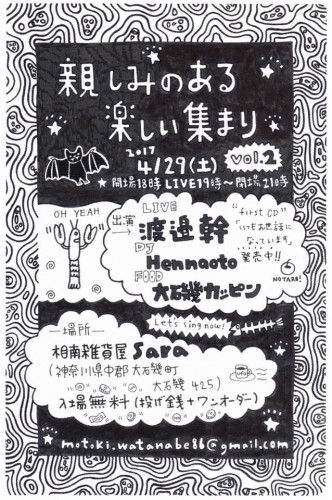 親しみのある
楽しい集まり
2017
4/29(土) vol.2
★ 開場18時 LIVE19時〜閉場21時
"OH YEAH"
出演
LIVE
渡邉幹
"first CD"
"いつもお世話に
なっています"
発売中!!
DJ
Hemnaoto
FOOD
大石磯カッピン
NOTARI!
Let's sing now!
―場所―
相南雑貨屋 Sara
(神奈川県中郡大石磯町
大石磯425)
入場無料(投げ銭+ワンオーダー)
motoki.watanabe86@gmail.com